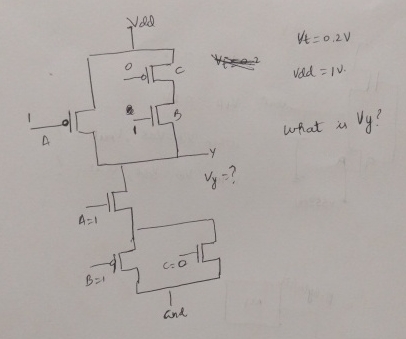 Vdd
Vt = 0.2V
0
C
Vdd = 1V.
1
A
1
B
what is Vy?
Y
Vy = ?
A=1
B=1
C=0
Gnd